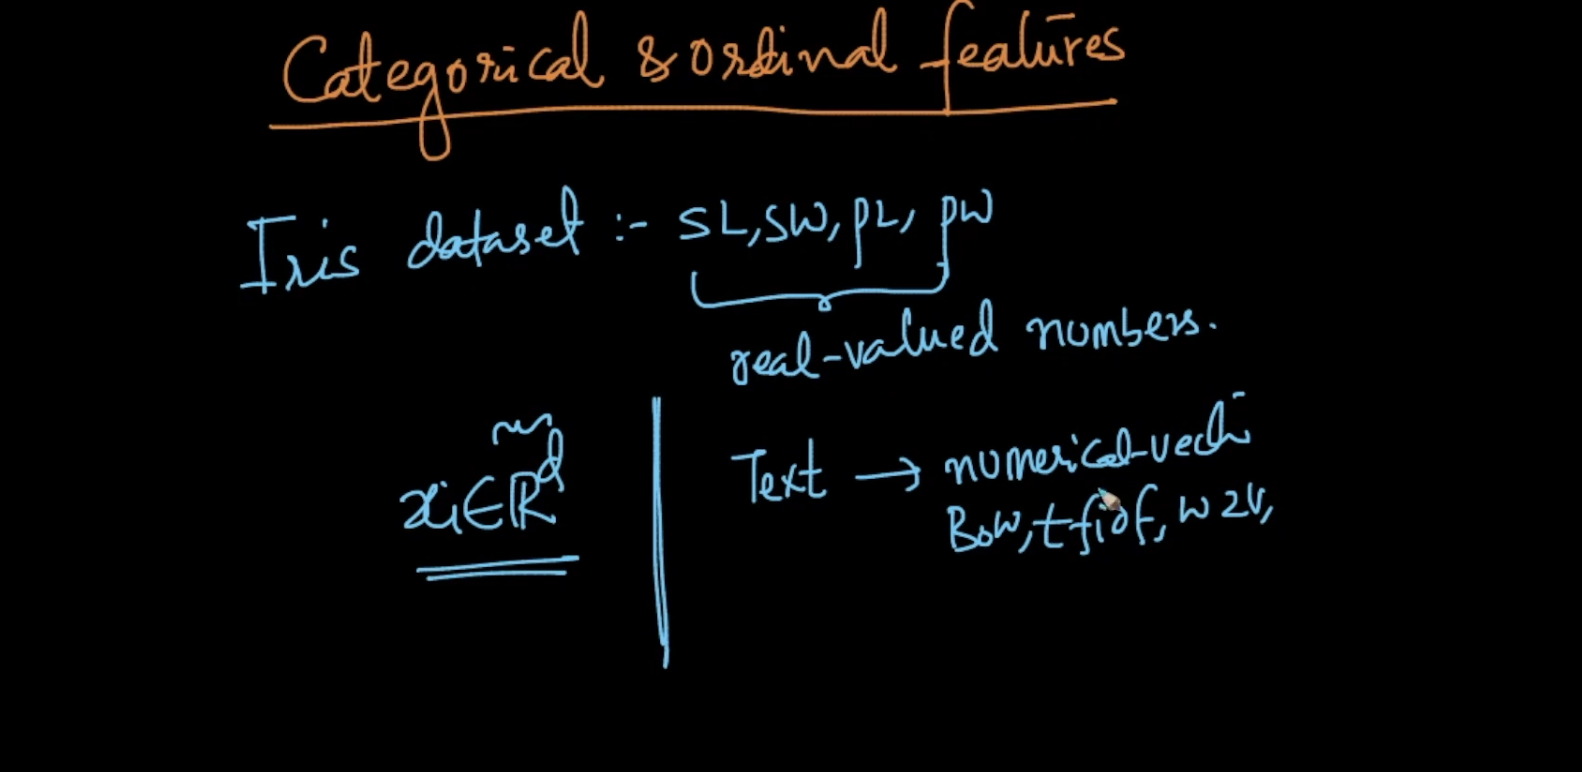 Categorical & ordinal features
Iris dataset :- SL, SW, PL, PW
real-valued numbers.
xi ∈ ℝᵈ
Text → numerical-vect
BoW, tfidf, w2v,